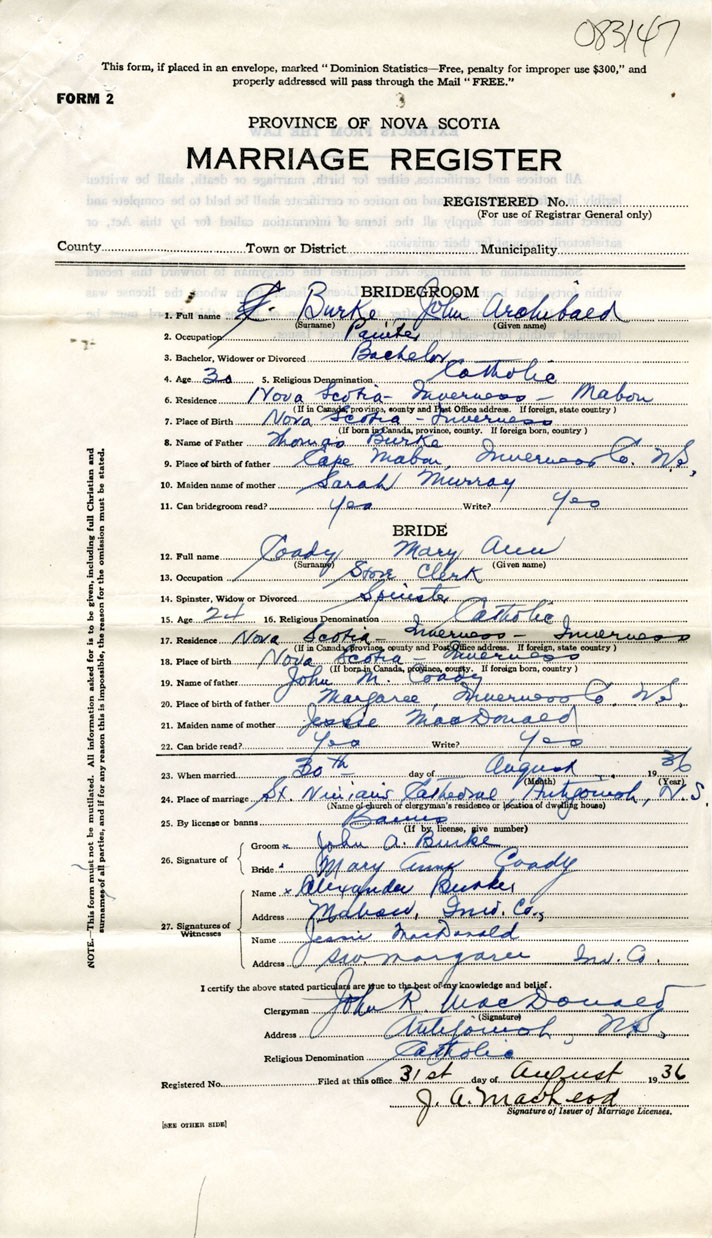 083147
This form, if placed in an envelope, marked "Dominion Statistics—Free, penalty for improper use $300," and
properly addressed will pass through the Mail "FREE."
FORM 2
PROVINCE OF NOVA SCOTIA
MARRIAGE REGISTER
REGISTERED No.
(For use of Registrar General only)
County Town or District Municipality
BRIDEGROOM
1. Full name Burke John Archibald
(Surname) (Given name)
2. Occupation Painter
3. Bachelor, Widower or Divorced Bachelor
4. Age 30 5. Religious Denomination Catholic
6. Residence Nova Scotia - Inverness - Mabou
(If in Canada, province, county and Post Office address. If foreign, state country)
7. Place of Birth Nova Scotia - Inverness
(If born in Canada, province, county. If foreign born, country)
8. Name of Father Thomas Burke
9. Place of birth of father Cape Mabou, Inverness Co. N.S,
10. Maiden name of mother Sarah Murray
11. Can bridegroom read? Yes Write? Yes
BRIDE
12. Full name Coady Mary Ann
(Surname) (Given name)
13. Occupation Store Clerk
14. Spinster, Widow or Divorced Spinster
15. Age 24 16. Religious Denomination Catholic
17. Residence Nova Scotia - Inverness - Inverness
(If in Canada, province, county and Post Office address. If foreign, state country)
18. Place of birth Nova Scotia - Inverness
(If born in Canada, province, county. If foreign born, country)
19. Name of father John M. Coady
20. Place of birth of father Margaree, Inverness Co, N.S.
21. Maiden name of mother Jessie MacDonald
22. Can bride read? Yes Write? Yes
23. When married 30th day of August 1936
(Month) (Year)
24. Place of marriage St. Ninian's Cathedral, Antigonish, N.S.
(Name of church or clergyman's residence or location of dwelling house)
25. By license or banns Banns
(If by license, give number)
26. Signature of
Groom x John A. Burke
Bride Mary Ann Coady
27. Signatures of Witnesses
Name x Alexander Burke
Address Mabou, Inv. Co.,
Name Jessie MacDonald
Address S.W. Margaree Inv. Co.
I certify the above stated particulars are true to the best of my knowledge and belief.
Clergyman John R. MacDonald
(Signature)
Address Antigonish, N.S.
Religious Denomination Catholic
Registered No. Filed at this office 31st day of August 1936
J. A. MacLeod
Signature of Issuer of Marriage Licenses.
[SEE OTHER SIDE]
NOTE.—This form must not be mutilated. All information asked for is to be given, including full Christian and
surnames of all parties, and if for any reason this is impossible, the reason for the omission must be stated.